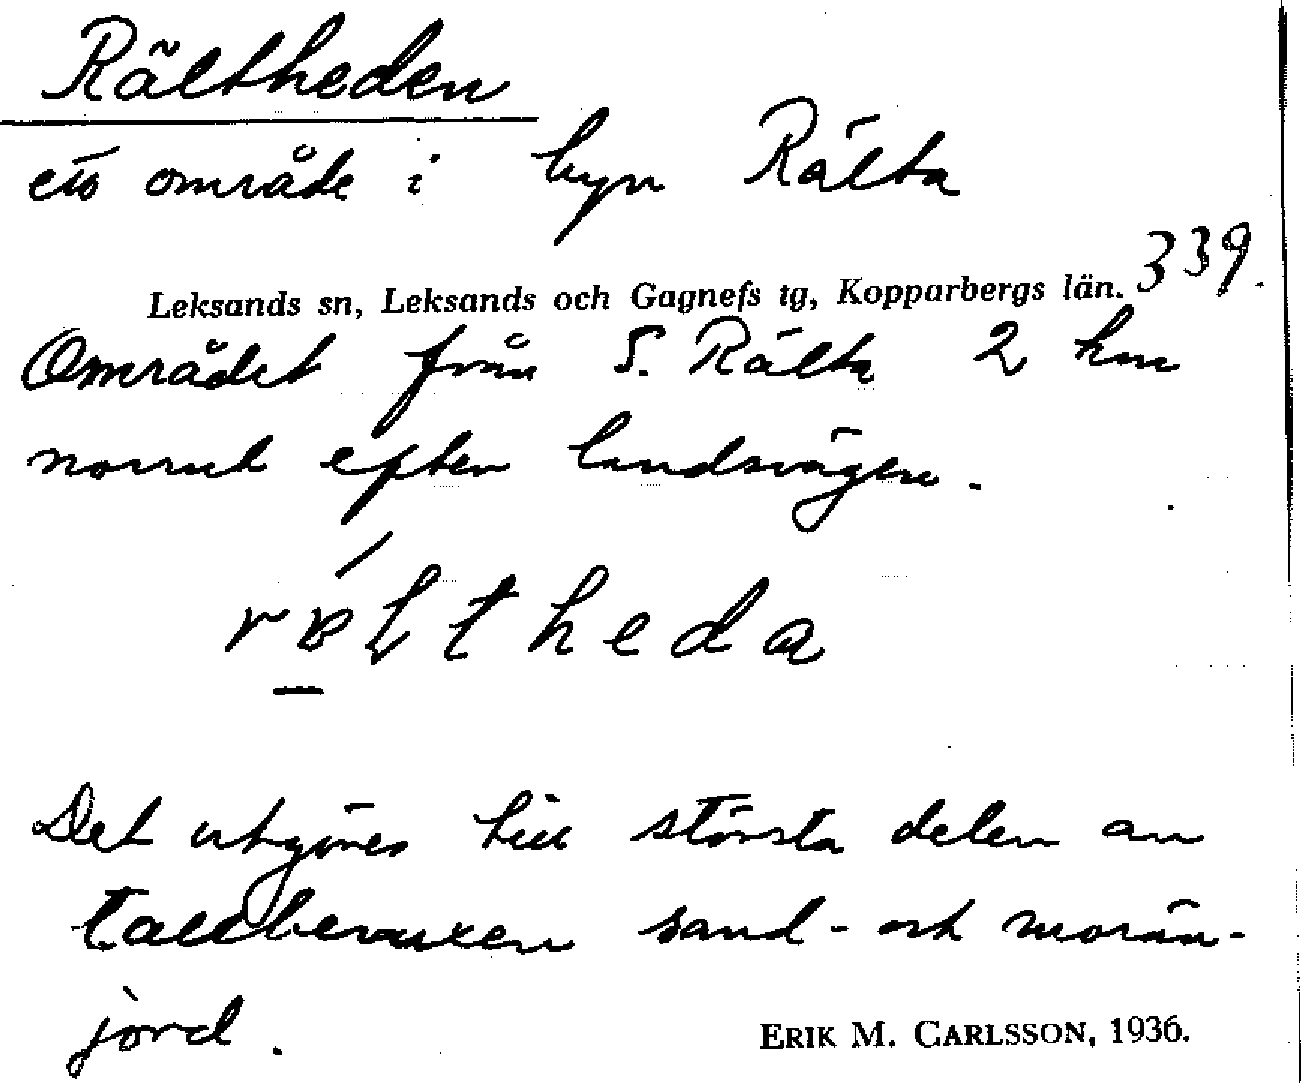 Rältheden
ett område i byn Rälta
339.
Leksands sn, Leksands och Gagnefs tg, Kopparbergs län.
Området från S. Rälta 2 km
norrut efter landsvägen.
ræltheda
Det utgöres till största delen av
tallbevuxen sand- och morän-
jord.
ERIK M. CARLSSON, 1936.